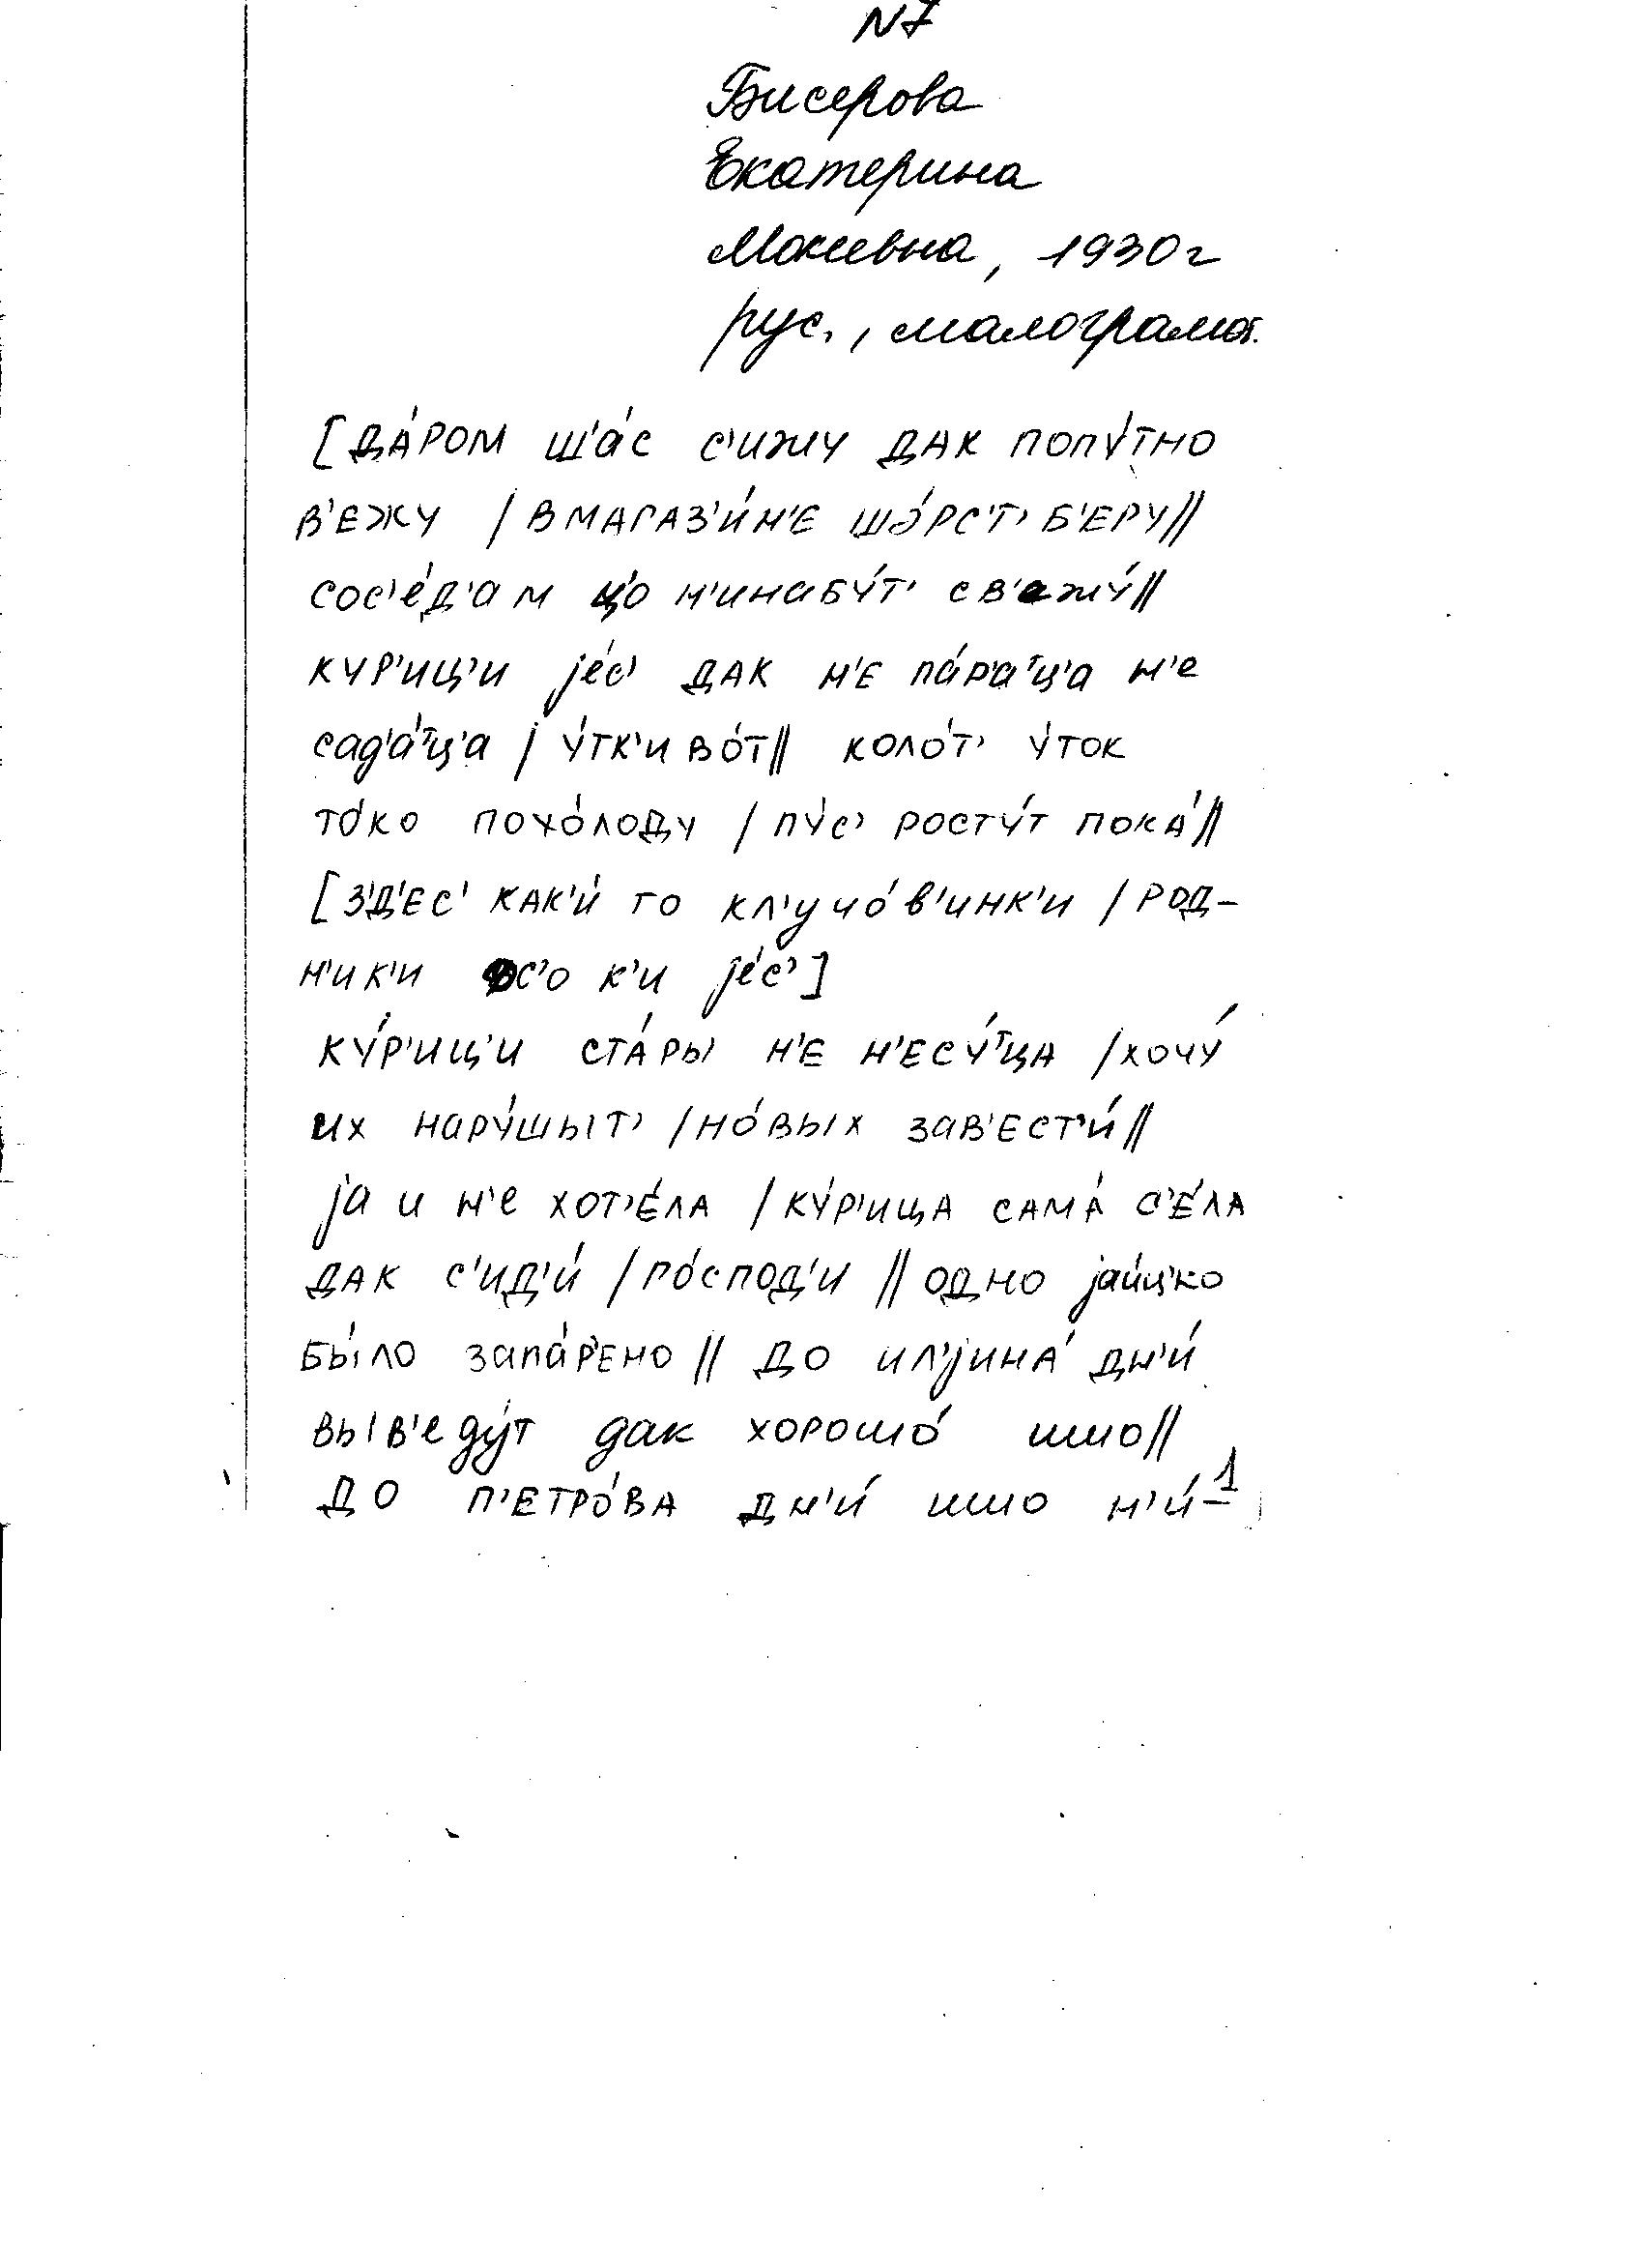 N7
Бисерова
Екатерина
Мокеевна, 1930г
рус., малограмот.
[ДА́РОМ Ш'А́С С'ИЖУ ДАК ПОПУ́ТНО
В'ЕЖУ / В МАГАЗ'И́Н'Е ШО́РС'Т' Б'ЕРУ//
СОС'Е́Д'АМ Ц'О Н'ИНАБУ́Т' СВ'ЕЖУ́//
КУР'ИЦ'И jе́с' ДАК Н'Е ПА́Р'АТЦ'А Н'Е
САД'А́ТЦ'А / У́ТК'И ВО́Т// КОЛО́Т' У́ТОК
ТО́КО ПОХО́ЛОДУ / ПУ́С' РОСТУ́Т ПОКА́//
[З'Д'ЕС' КАК'И́ ТО КЛ'УЧО́В'ИНК'И / РОД-
Н'ИК'И ВС'О К'И jе́с']
КУ́Р'ИЦ'И СТА́РЫ Н'Е Н'ЕСУ́ТЦА / ХОЧУ́
ИХ НАРУ́ШЫТ' / НО́ВЫХ ЗАВ'ЕСТ'И́//
jа И Н'Е ХОТ'Е́ЛА / КУ́Р'ИЦА САМА́ С'Е́ЛА
ДАК С'ИД'И́ / ГО́СПОД'И // ОДНО jаи́ц'ко
БЫ́ЛО ЗАПА́Р'ЕНО // ДО ИЛ'jИНА́ ДН'И́
ВЫВ'ЕДУ́Т ДАК ХОРОШО́ ИШО//
ДО П'ЕТРО́ВА ДН'И́ ИШО Н'И́-1